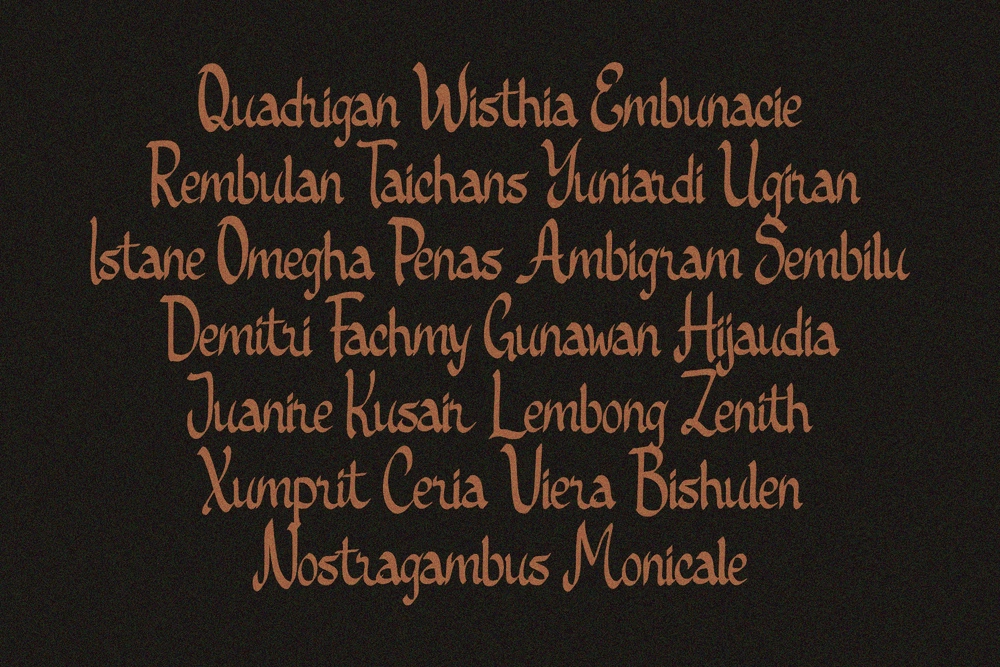 Quadrigan Wisthia Embunacie
Rembulan Taichans Yuniardi Ugiran
Istane Omegha Penas Ambigram Sembilu
Demitri Fachmy Gunawan Hijaudia
Juanire Kusair Lembong Zenith
Xumprit Ceria Viera Bishulen
Nostragambus Monicale